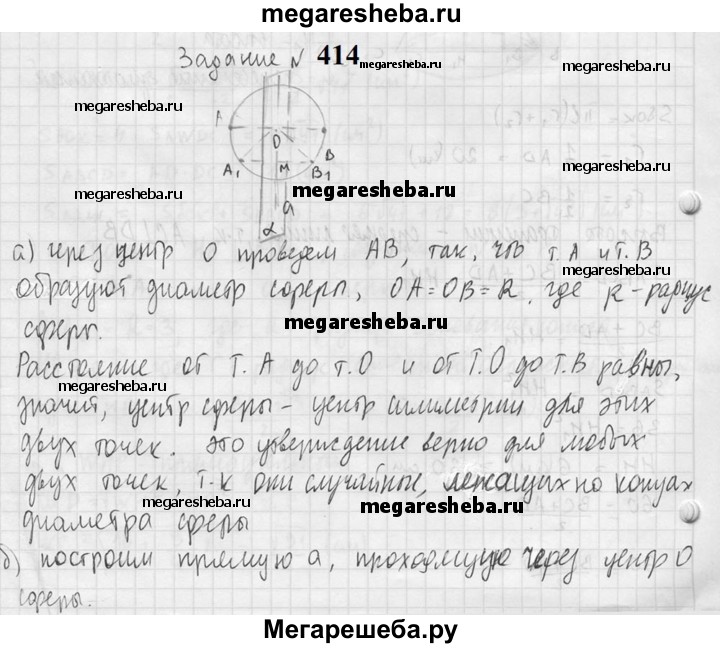 megaresheba.ru
Задание № 414 megaresheba.ru
megaresheba.ru
megaresheba.ru
A
O
B
A₁
M
B₁
megaresheba.ru
a
α
а) через центр О проведем АВ, так, что т. А и т. В
megaresheba.ru
образуют диаметр сферы, OA=OB=R, где R - радиус
сферы.
megaresheba.ru
Расстояние от т. А до т. О и от т. О до т. В равны,
megaresheba.ru
значит, центр сферы - центр симметрии для этих
двух точек. Это утверждение верно для любых
двух точек, т-к они случайные, лежащих на концах
megaresheba.ru
megaresheba.ru
диаметра сферы
б) построим прямую а, проходящую через центр О
сферы.
megaresheba.ru
Мегарешеба.ру